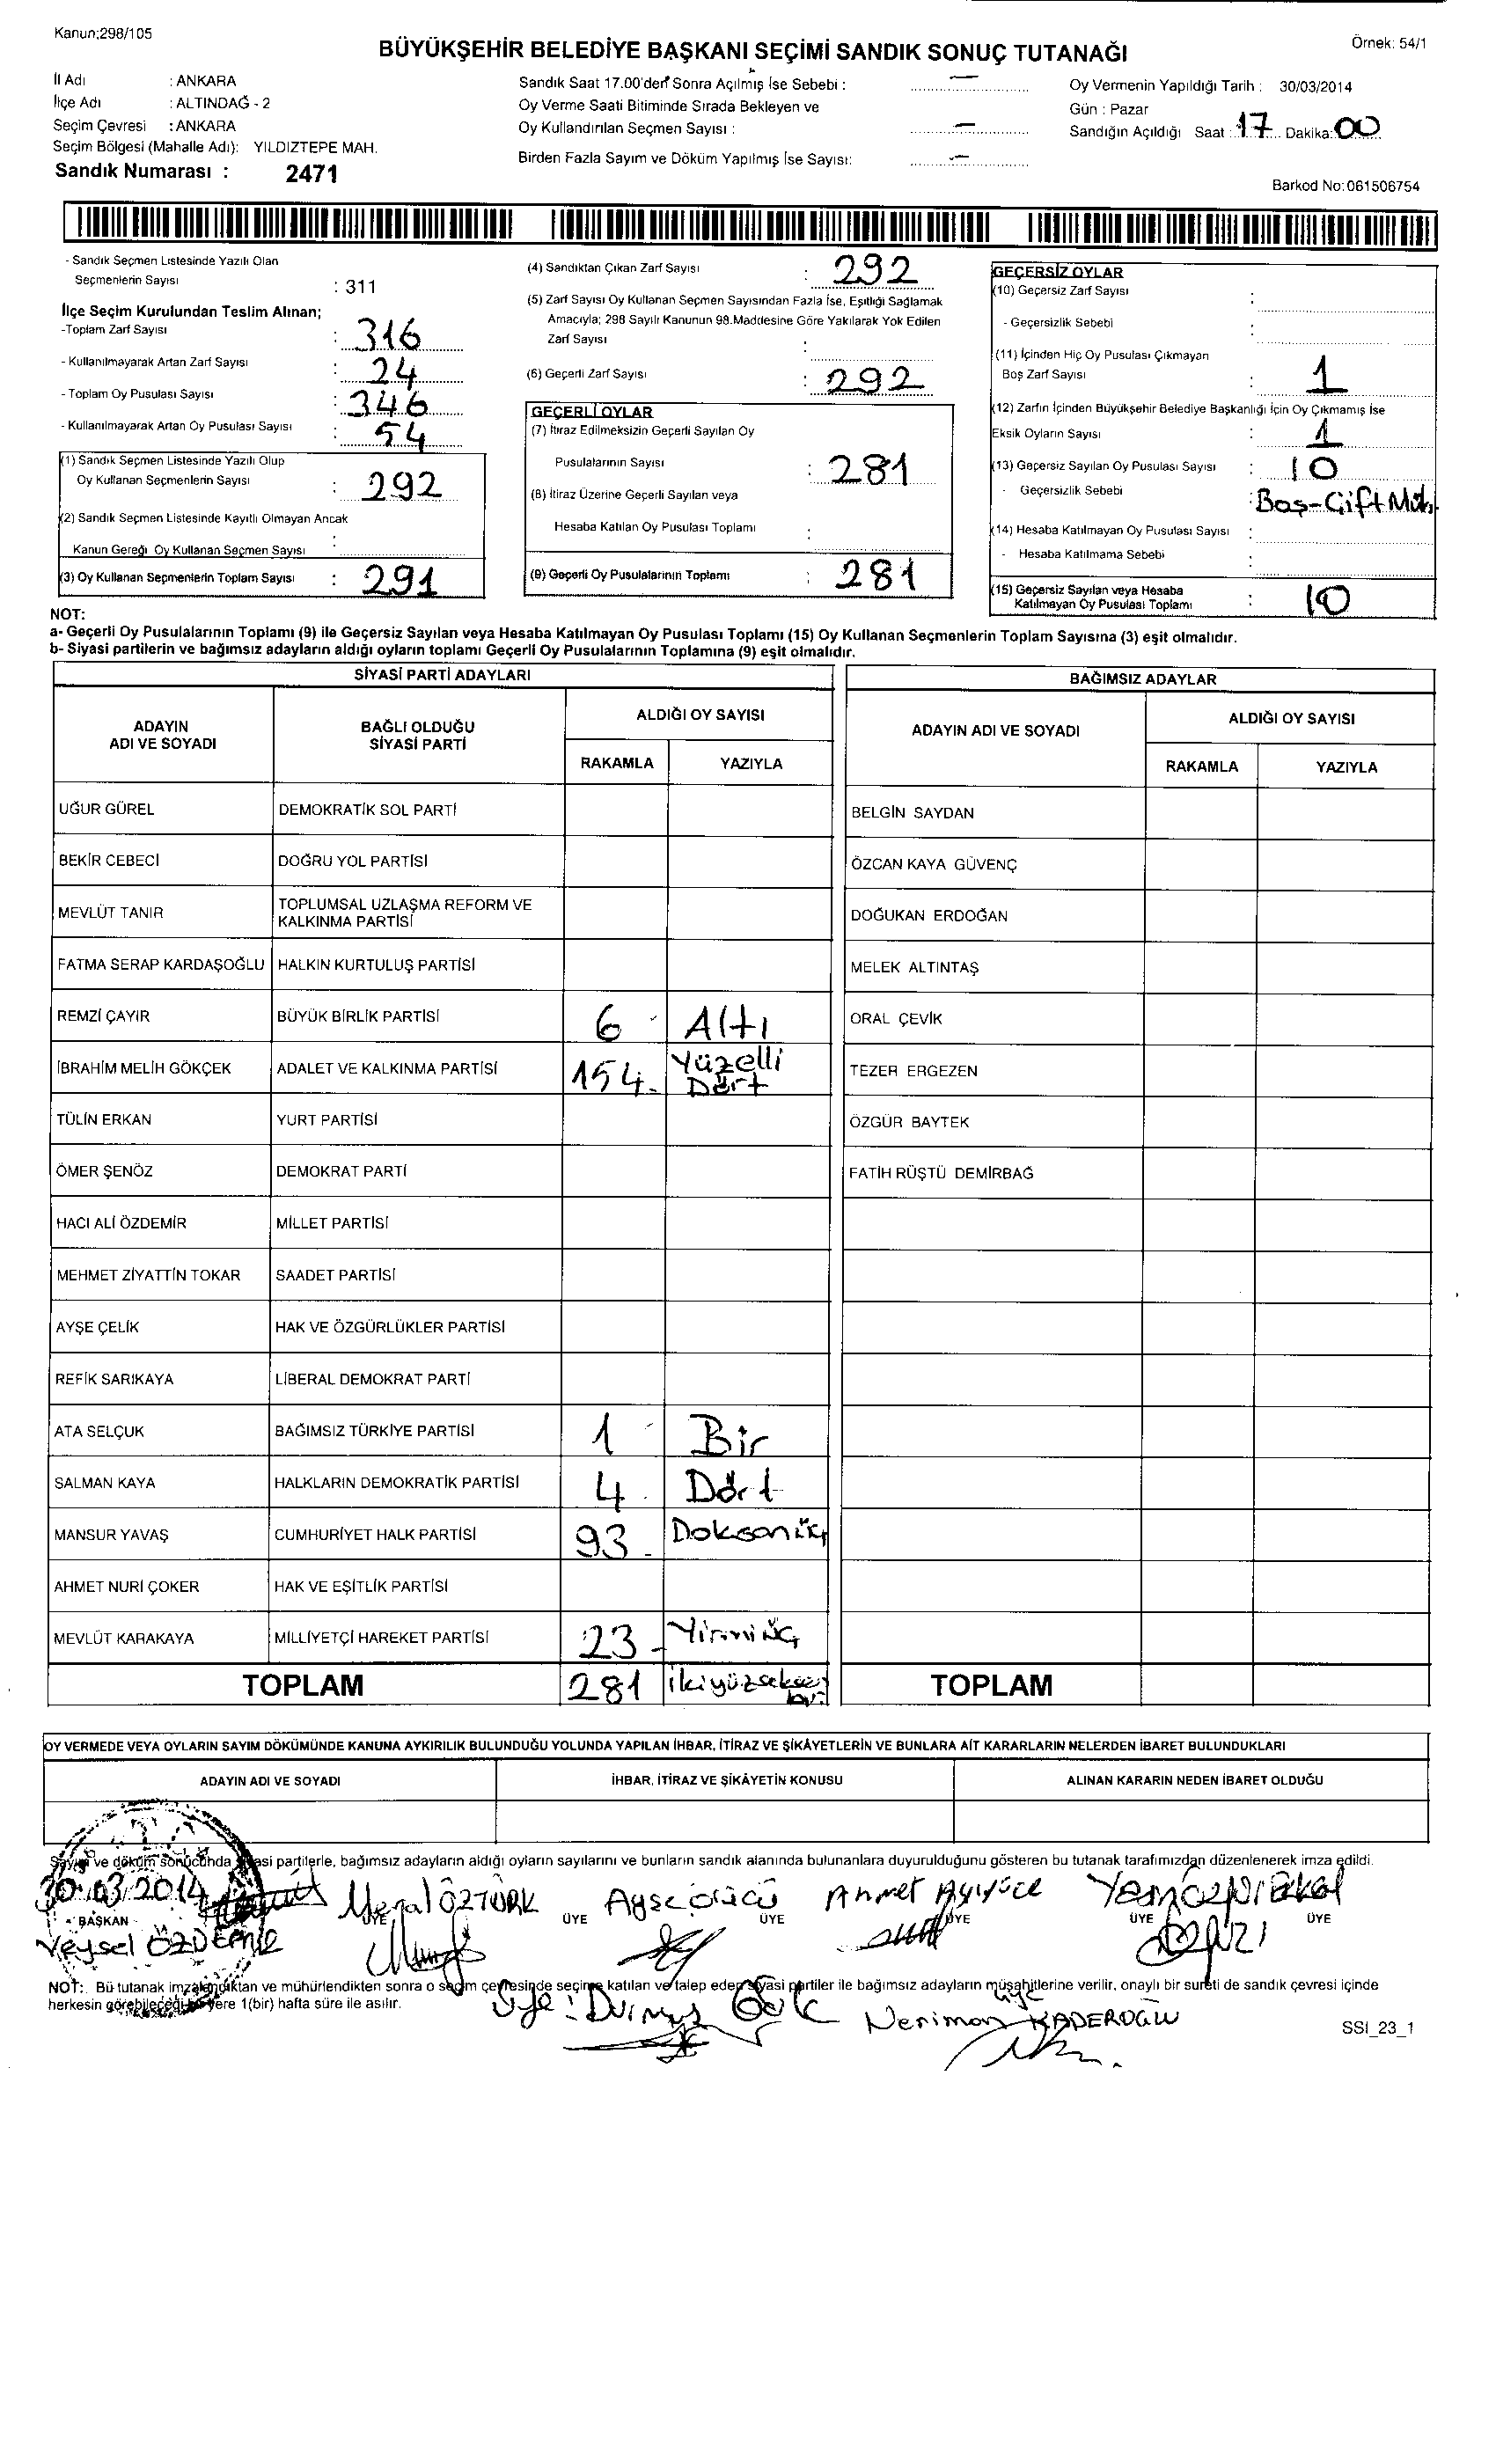 Kanun;298/105
Örnek: 54/1
BÜYÜKŞEHİR BELEDİYE BAŞKANI SEÇİMİ SANDIK SONUÇ TUTANAĞI
İl Adı : ANKARA
İlçe Adı : ALTINDAĞ - 2
Seçim Çevresi : ANKARA
Seçim Bölgesi (Mahalle Adı): YILDIZTEPE MAH.
Sandık Numarası : 2471
Sandık Saat 17.00'den Sonra Açılmış İse Sebebi : —
Oy Verme Saati Bitiminde Sırada Bekleyen ve
Oy Kullandırılan Seçmen Sayısı : —
Birden Fazla Sayım ve Döküm Yapılmış İse Sayısı: —
Oy Vermenin Yapıldığı Tarih : 30/03/2014
Gün : Pazar
Sandığın Açıldığı Saat : 17 Dakika: 00
Barkod No: 061506754
- Sandık Seçmen Listesinde Yazılı Olan
Seçmenlerin Sayısı : 311
İlçe Seçim Kurulundan Teslim Alınan;
-Toplam Zarf Sayısı : 316
- Kullanılmayarak Artan Zarf Sayısı : 24
- Toplam Oy Pusulası Sayısı : 346
- Kullanılmayarak Artan Oy Pusulası Sayısı : 54
(1) Sandık Seçmen Listesinde Yazılı Olup
Oy Kullanan Seçmenlerin Sayısı : 292
(2) Sandık Seçmen Listesinde Kayıtlı Olmayan Ancak
Kanun Gereği Oy Kullanan Seçmen Sayısı :
(3) Oy Kullanan Seçmenlerin Toplam Sayısı : 291
(4) Sandıktan Çıkan Zarf Sayısı : 292
(5) Zarf Sayısı Oy Kullanan Seçmen Sayısından Fazla İse, Eşitliği Sağlamak
Amacıyla; 298 Sayılı Kanunun 98.Maddesine Göre Yakılarak Yok Edilen
Zarf Sayısı :
(6) Geçerli Zarf Sayısı : 292
GEÇERLİ OYLAR
(7) İtiraz Edilmeksizin Geçerli Sayılan Oy
Pusulalarının Sayısı : 281
(8) İtiraz Üzerine Geçerli Sayılan veya
Hesaba Katılan Oy Pusulası Toplamı :
(9) Geçerli Oy Pusulalarının Toplamı : 281
GEÇERSİZ OYLAR
(10) Geçersiz Zarf Sayısı :
- Geçersizlik Sebebi :
(11) İçinden Hiç Oy Pusulası Çıkmayan
Boş Zarf Sayısı : 1
(12) Zarfın İçinden Büyükşehir Belediye Başkanlığı İçin Oy Çıkmamış İse
Eksik Oyların Sayısı : 1
(13) Geçersiz Sayılan Oy Pusulası Sayısı : 10
- Geçersizlik Sebebi : Boş-Çift
(14) Hesaba Katılmayan Oy Pusulası Sayısı :
- Hesaba Katılmama Sebebi :
(15) Geçersiz Sayılan veya Hesaba
Katılmayan Oy Pusulası Toplamı : 10
NOT:
a- Geçerli Oy Pusulalarının Toplamı (9) ile Geçersiz Sayılan veya Hesaba Katılmayan Oy Pusulası Toplamı (15) Oy Kullanan Seçmenlerin Toplam Sayısına (3) eşit olmalıdır.
b- Siyasi partilerin ve bağımsız adayların aldığı oyların toplamı Geçerli Oy Pusulalarının Toplamına (9) eşit olmalıdır.
SİYASİ PARTİ ADAYLARI
ADAYIN ADI VE SOYADI BAĞLI OLDUĞU SİYASİ PARTİ ALDIĞI OY SAYISI
RAKAMLA YAZIYLA
UĞUR GÜREL DEMOKRATİK SOL PARTİ
BEKİR CEBECİ DOĞRU YOL PARTİSİ
MEVLÜT TANIR TOPLUMSAL UZLAŞMA REFORM VE KALKINMA PARTİSİ
FATMA SERAP KARDAŞOĞLU HALKIN KURTULUŞ PARTİSİ
REMZİ ÇAYIR BÜYÜK BİRLİK PARTİSİ 6 Altı
İBRAHİM MELİH GÖKÇEK ADALET VE KALKINMA PARTİSİ 154 Yüzelli Dört
TÜLİN ERKAN YURT PARTİSİ
ÖMER ŞENÖZ DEMOKRAT PARTİ
HACI ALİ ÖZDEMİR MİLLET PARTİSİ
MEHMET ZİYATTİN TOKAR SAADET PARTİSİ
AYŞE ÇELİK HAK VE ÖZGÜRLÜKLER PARTİSİ
REFİK SARIKAYA LİBERAL DEMOKRAT PARTİ
ATA SELÇUK BAĞIMSIZ TÜRKİYE PARTİSİ 1 Bir
SALMAN KAYA HALKLARIN DEMOKRATİK PARTİSİ 4 Dört
MANSUR YAVAŞ CUMHURİYET HALK PARTİSİ 93 Doksan üç
AHMET NURİ ÇOKER HAK VE EŞİTLİK PARTİSİ
MEVLÜT KARAKAYA MİLLİYETÇİ HAREKET PARTİSİ 23 Yirmi üç
TOPLAM 281 ikiyüzseksen bir
BAĞIMSIZ ADAYLAR
ADAYIN ADI VE SOYADI ALDIĞI OY SAYISI
RAKAMLA YAZIYLA
BELGİN SAYDAN
ÖZCAN KAYA GÜVENÇ
DOĞUKAN ERDOĞAN
MELEK ALTINTAŞ
ORAL ÇEVİK
TEZER ERGEZEN
ÖZGÜR BAYTEK
FATİH RÜŞTÜ DEMİRBAĞ
TOPLAM
OY VERMEDE VEYA OYLARIN SAYIM DÖKÜMÜNDE KANUNA AYKIRILIK BULUNDUĞU YOLUNDA YAPILAN İHBAR, İTİRAZ VE ŞİKÂYETLERİN VE BUNLARA AİT KARARLARIN NELERDEN İBARET BULUNDUKLARI
ADAYIN ADI VE SOYADI İHBAR, İTİRAZ VE ŞİKÂYETİN KONUSU ALINAN KARARIN NEDEN İBARET OLDUĞU
Sayım ve döküm sonucunda siyasi partilerle, bağımsız adayların aldığı oyların sayılarını ve bunların sandık alanında bulunanlara duyurulduğunu gösteren bu tutanak tarafımızdan düzenlenerek imza edildi.
30.03.2014 Meral ÖZTÜRK Ayşe Ahmet
BAŞKAN ÜYE ÜYE ÜYE ÜYE ÜYE ÜYE
Veysel ÖZDEMİR
NOT: Bu tutanak imzalandıktan ve mühürlendikten sonra o seçim çevresinde seçime katılan ve talep eden siyasi partiler ile bağımsız adayların müşahitlerine verilir, onaylı bir sureti de sandık çevresi içinde
herkesin görebileceği bir yere 1(bir) hafta süre ile asılır.
Üye: Durmuş
üye
Neriman KADEROĞLU
SSI_23_1